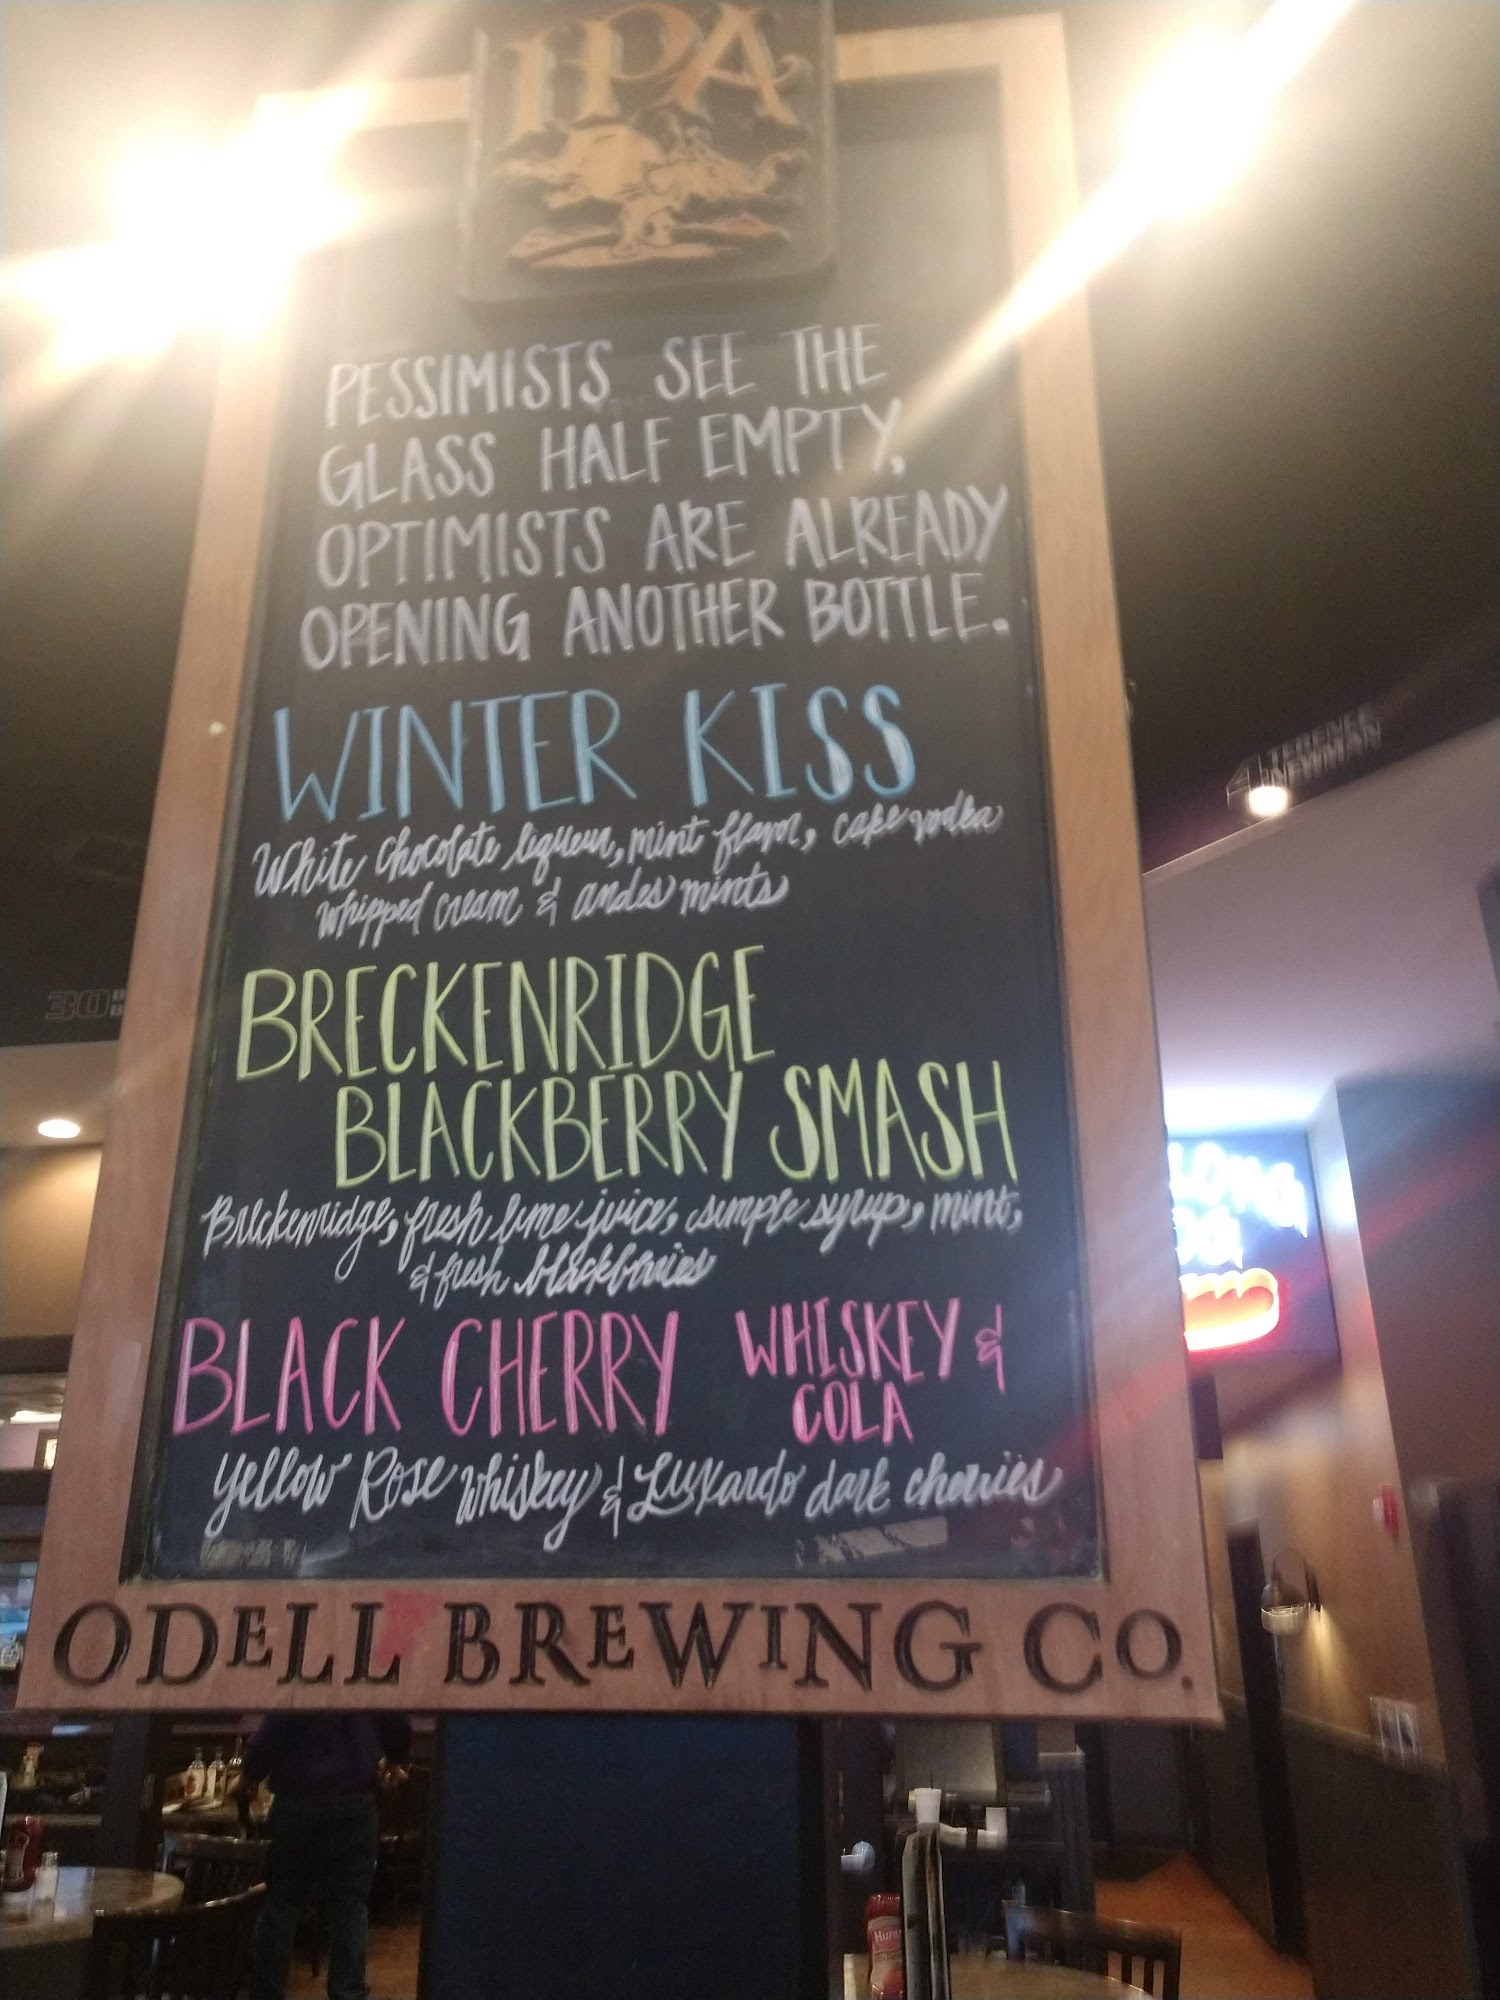 IPA
PESSIMISTS SEE THE
GLASS HALF EMPTY,
OPTIMISTS ARE ALREADY
OPENING ANOTHER BOTTLE.
WINTER KISS
White chocolate liqueur, mint flavor, cake vodka
whipped cream & andes mints
BRECKENRIDGE
BLACKBERRY SMASH
Breckenridge, fresh lime juice, simple syrup, mint,
& fresh blackberries
BLACK CHERRY WHISKEY &
COLA
Yellow Rose Whiskey & Luxardo dark cherries
ODELL BREWING CO.
4 TERENCE
NEWMAN
30
Hunt's